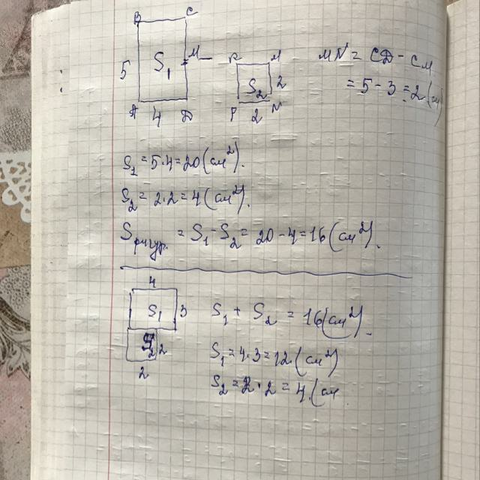 B C
5 S₁ M
A 4 D
K M
S₂ 2
P 2 N
MN = CD - CM
= 5 - 3 = 2 (см)
S₁ = 5·4 = 20 (см²).
S₂ = 2·2 = 4 (см²).
Sфигур. = S₁ - S₂ = 20 - 4 = 16 (см²).
4
S₁ 3
S₂ 2
2
S₁ + S₂ = 16 (см²).
S₁ = 4·3 = 12 (см²)
S₂ = 2·2 = 4 (см